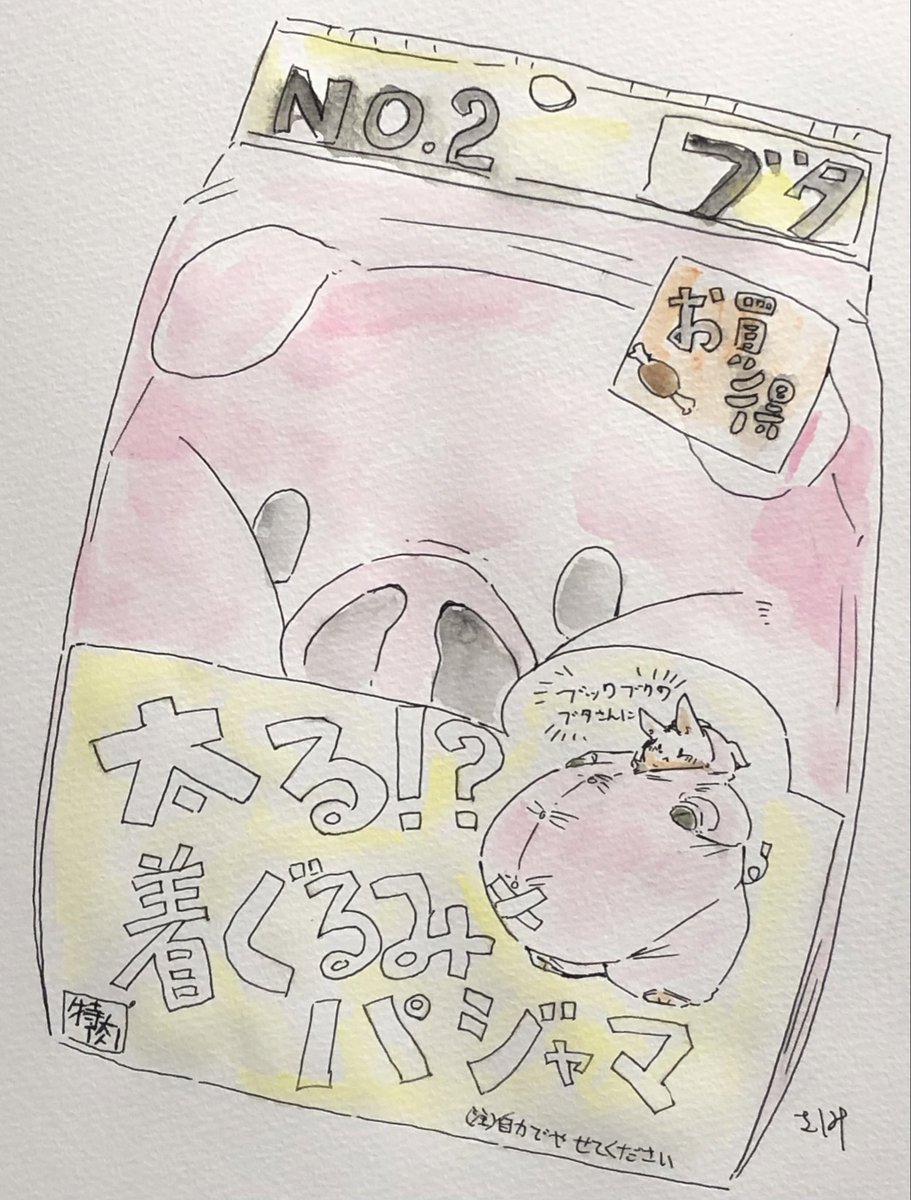 NO.2
ブタ
お買い得
太る!?
ブックブクの
ブタさんに
着ぐるみ
パジャマ
特肉
(注)自力でやせてください